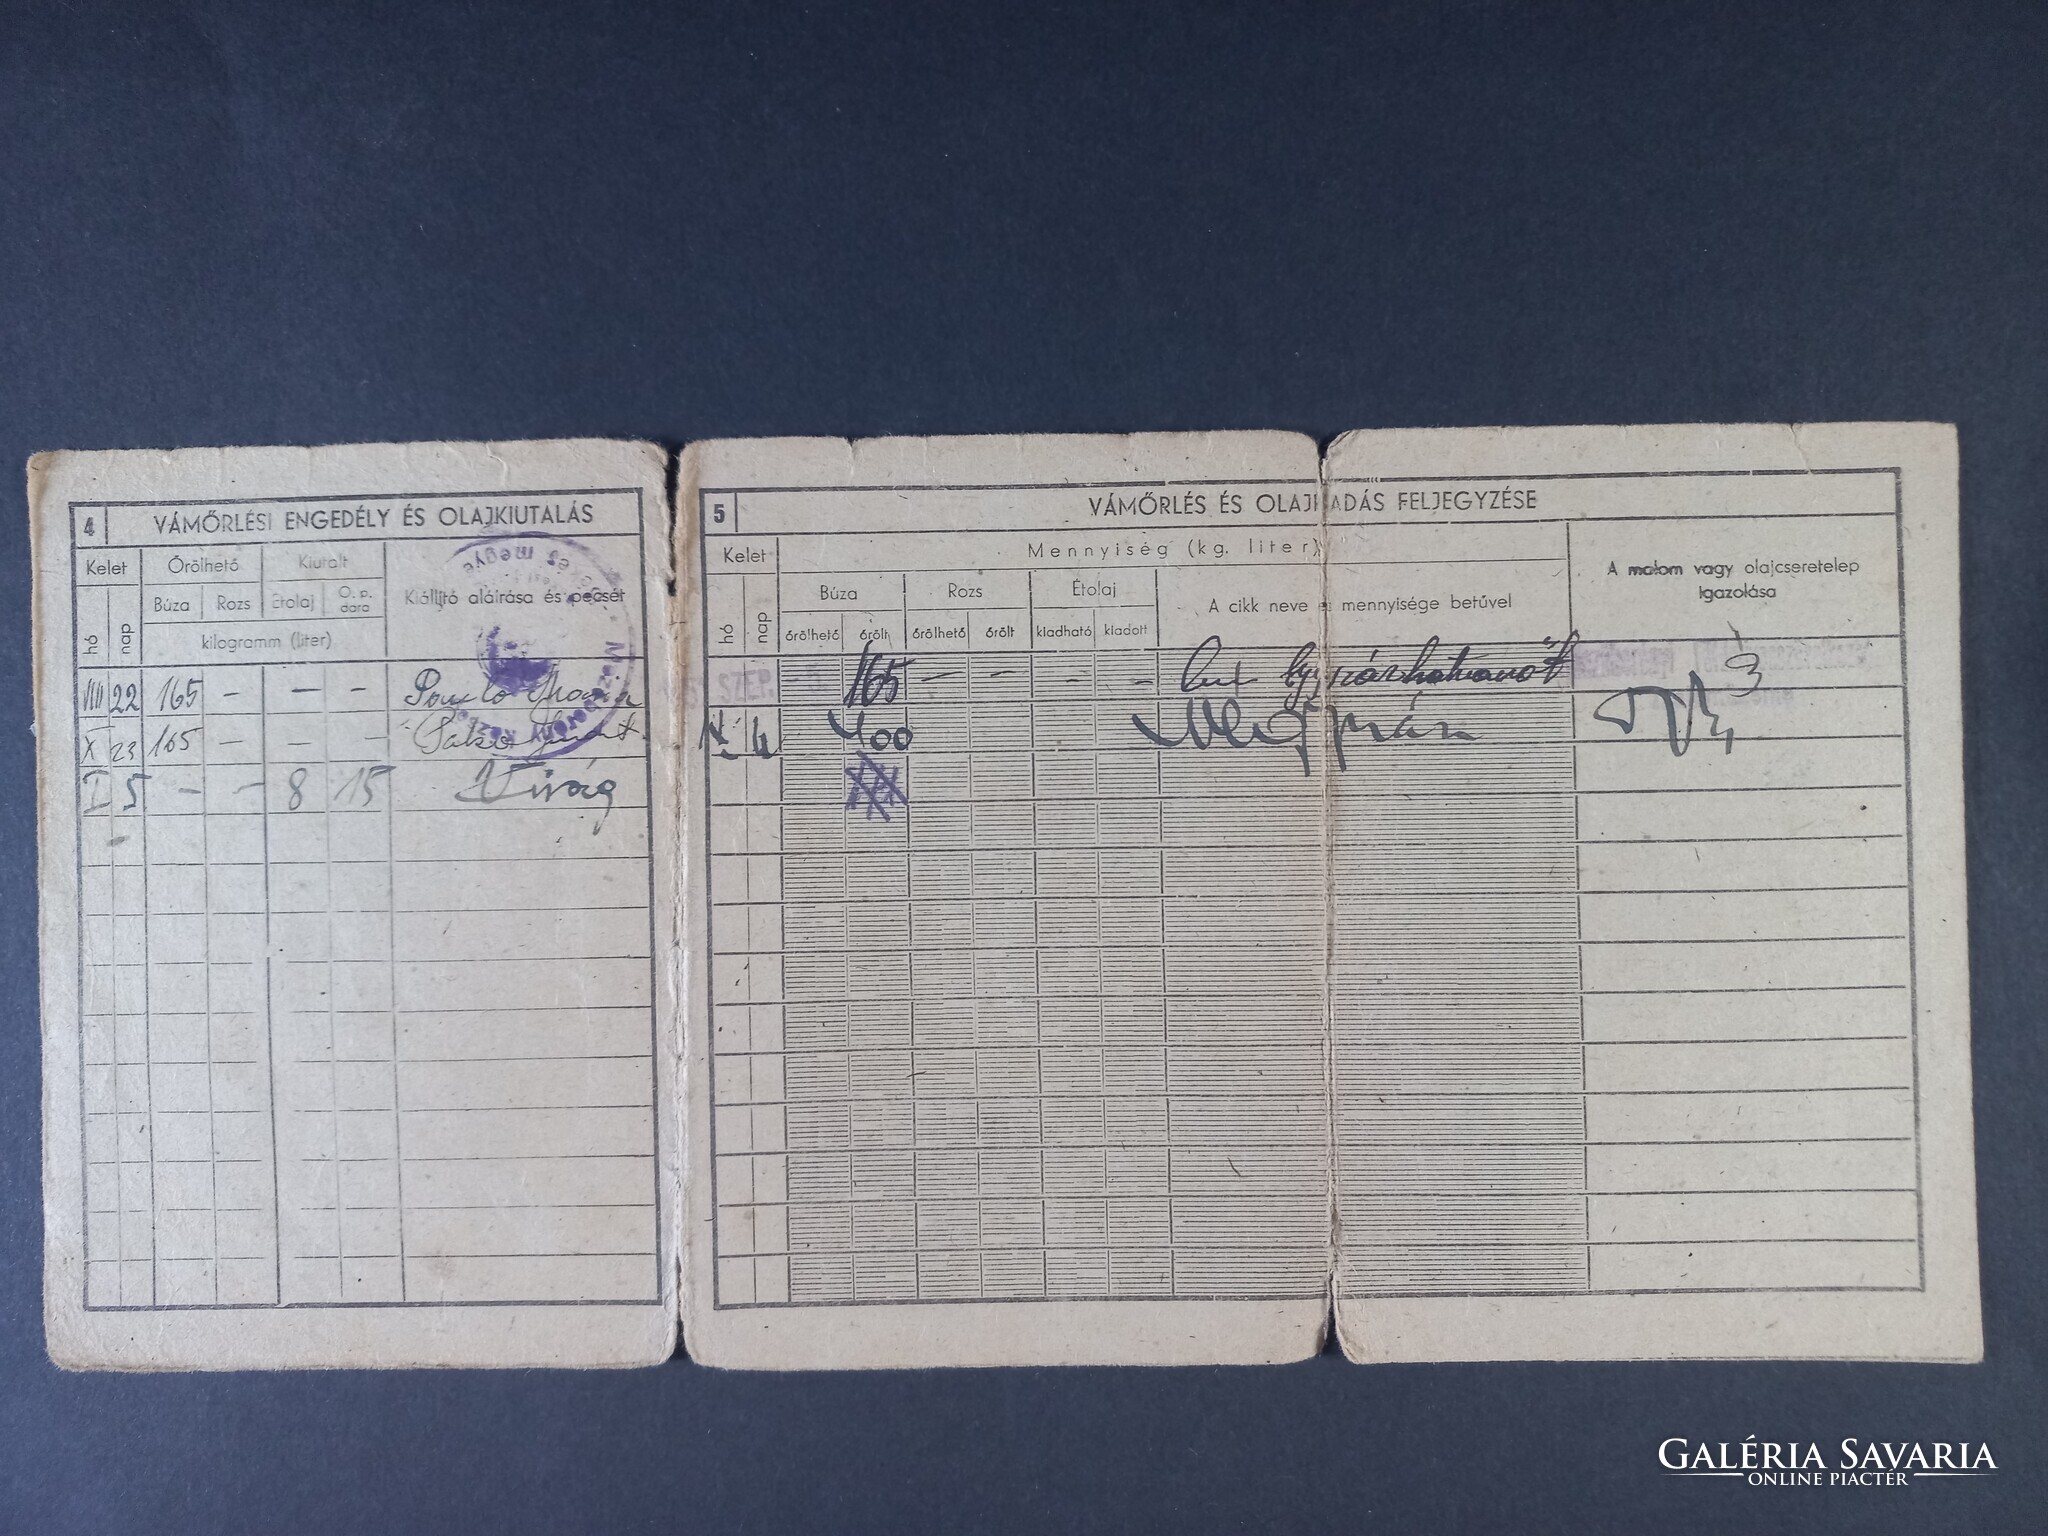 4 VÁMŐRLÉSI ENGEDÉLY ÉS OLAJKIUTALÁS
Kelet Őrölhető Kiutalt Kiállító aláírása és pecsét
hó nap Búza Rozs Étolaj O. p. dara
kilogramm (liter)
VIII 22 165 — — —
X 23 165 — — —
I 5 — — 8 15 Virág
Mezőberény Község
5 VÁMŐRLÉS ÉS OLAJKIADÁS FELJEGYZÉSE
Kelet Mennyiség (kg. liter) A malom vagy olajcseretelep igazolása
hó nap Búza Rozs Étolaj A cikk neve és mennyisége betűvel
őrölhető őrölt őrölhető őrölt kiadható kiadott
SZEP. 165 — — — —
400
GALÉRIA SAVARIA
ONLINE PIACTÉR